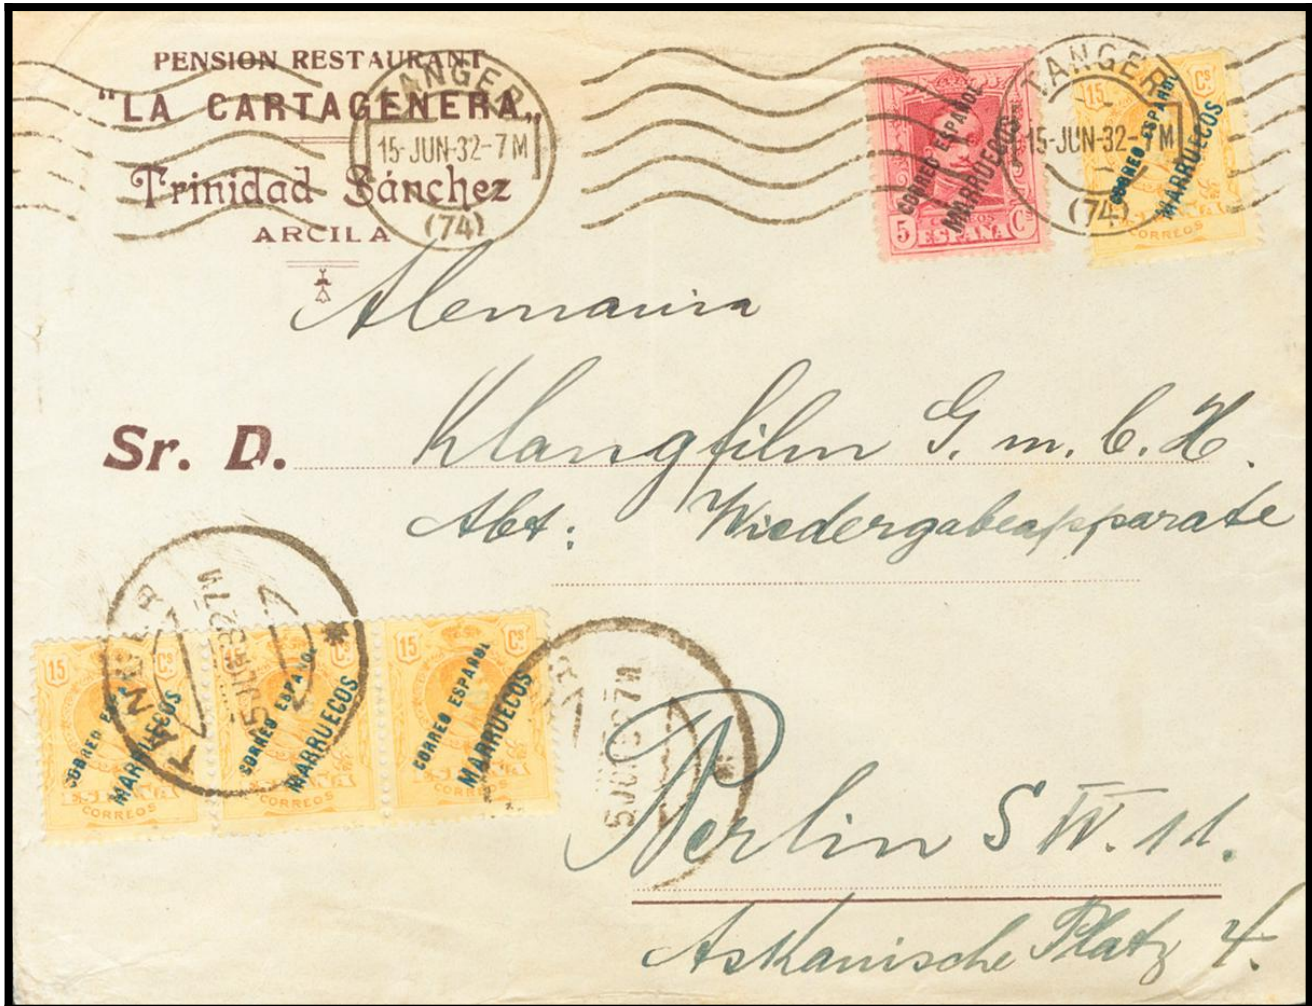 PENSION RESTAURANT
"LA CARTAGENERA„
Trinidad Sánchez
ARCILA
TANGER
15-JUN-32-7M
(74)
TANGER
15-JUN-32-7M
(74)
CORREO ESPAÑOL
MARRUECOS
5 Cs
CORREOS
ESPAÑA
15 Cs
CORREO ESPAÑOL
MARRUECOS
CORREOS
Alemania
Sr. D. Klangfilm G. m. b. H.
Abt: Wiedergabeapparate
TANGER
5JUN327M
15 Cs
CORREO ESPAÑOL
MARRUECOS
CORREOS
Cs
CORREO ESPAÑOL
MARRUECOS
CORREOS
15 Cs
CORREO ESPAÑOL
MARRUECOS
CORREOS
5JUN327M
Berlin S W. 11.
Askanische Platz 4.